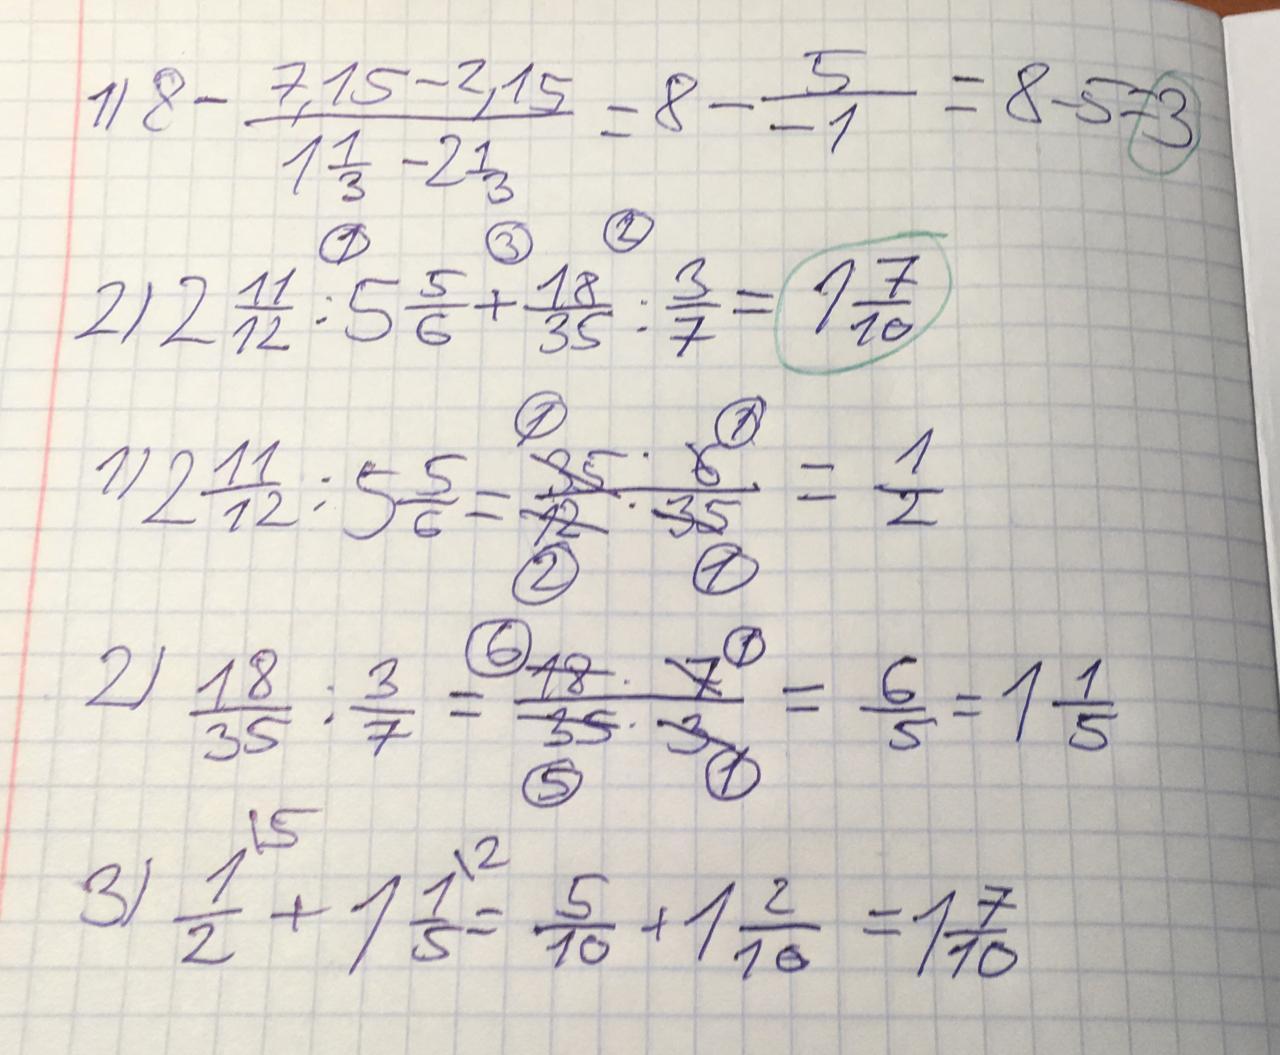 1) 8 - (7,15 - 2,15)/(1 1/3 - 2 1/3) = 8 - 5/(-1) = 8 - 5 = 3
① ③ ②
2) 2 11/12 : 5 5/6 + 18/35 : 3/7 = 1 7/10
① ①
1) 2 11/12 : 5 5/6 = (35 · 6)/(12 · 35) = 1/2
② ①
⑥ ①
2) 18/35 : 3/7 = (18 · 7)/(35 · 3) = 6/5 = 1 1/5
⑤ ①
3) 1/2 \5 + 1 1/5 \2 = 5/10 + 1 2/10 = 1 7/10